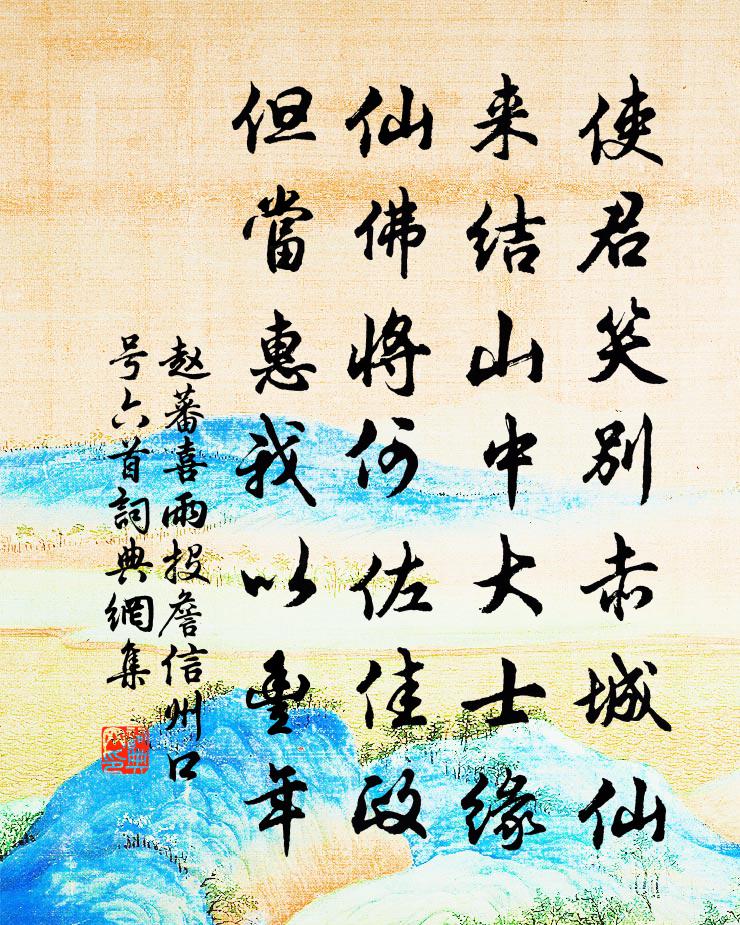 使君笑别赤城仙
来结山中大士缘
仙佛将何佐佳政
但當惠我以豊年
赵蕃喜雨投詹信州口
号六首詞典網集